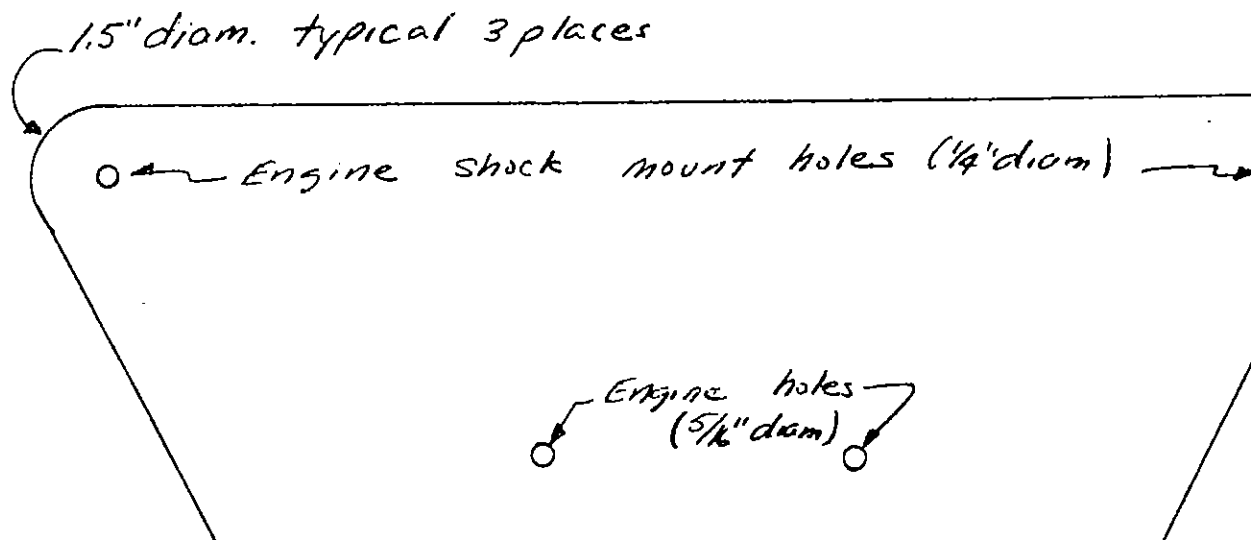 1.5" diam. typical 3 places
Engine shock mount holes (1/4" diam)
Engine holes
(5/16" diam)